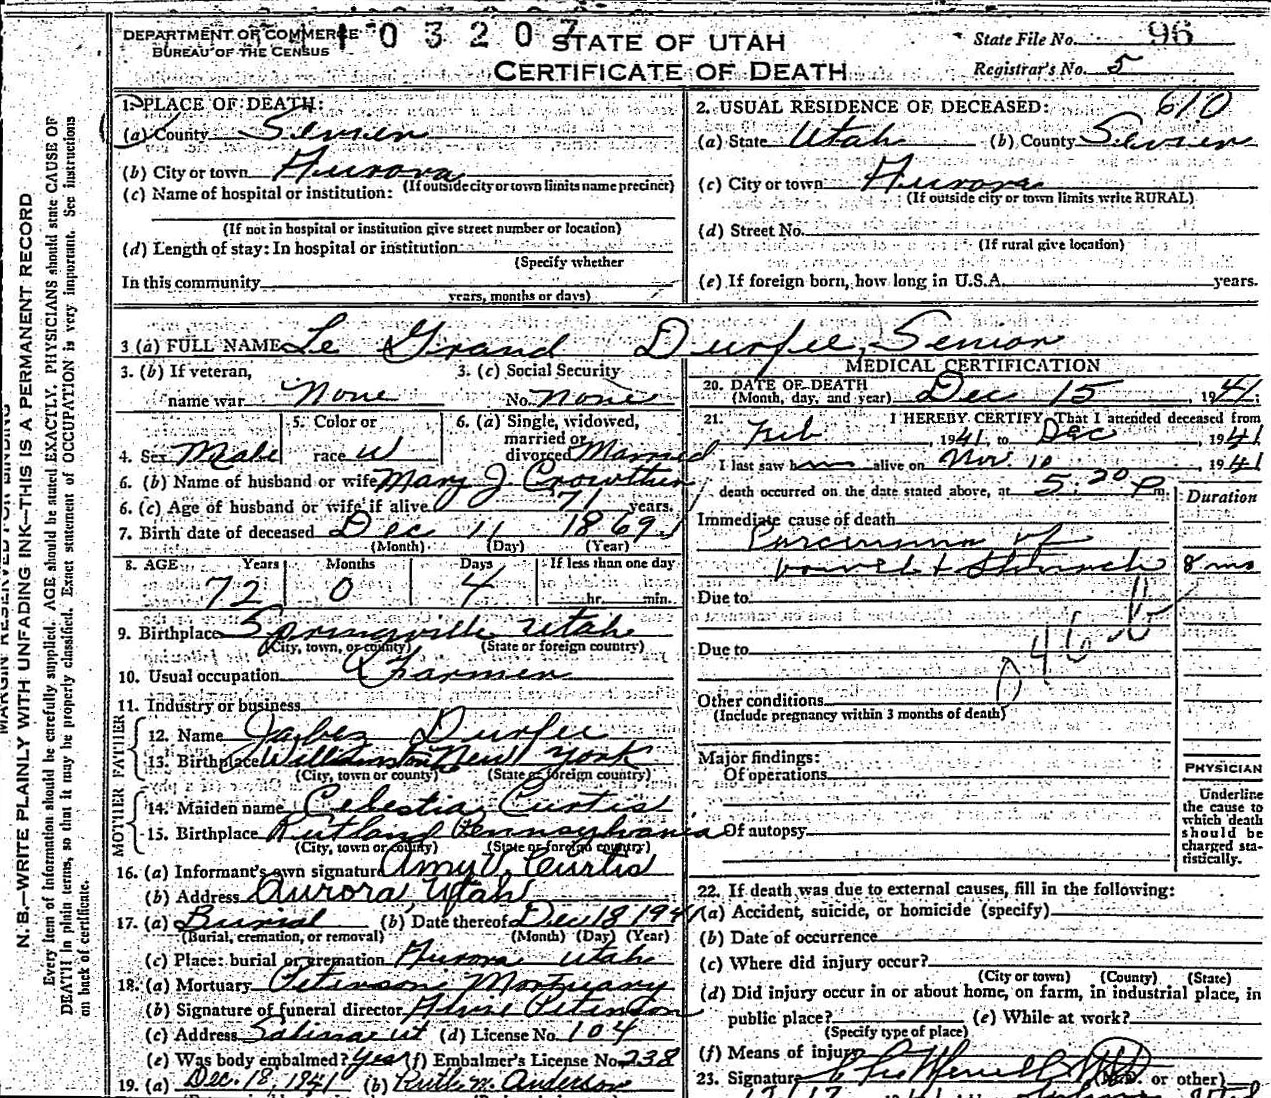 DEPARTMENT OF COMMERCE
BUREAU OF THE CENSUS
10 3 2 0 7
STATE OF UTAH
CERTIFICATE OF DEATH
State File No. 96
Registrar's No. 5
1. PLACE OF DEATH:
(a) County Sevier
(b) City or town Aurora
(If outside city or town limits name precinct)
(c) Name of hospital or institution:
(If not in hospital or institution give street number or location)
(d) Length of stay: In hospital or institution
(Specify whether
In this community
years, months or days)
2. USUAL RESIDENCE OF DECEASED: 610
(a) State Utah (b) County Sevier
(c) City or town Aurora
(If outside city or town limits write RURAL)
(d) Street No.
(If rural give location)
(e) If foreign born, how long in U.S.A. years.
3 (a) FULL NAME Le Grand Durfee, Senior
3. (b) If veteran, 3. (c) Social Security
name war None No. none
4. Sex Male 5. Color or race W 6. (a) Single, widowed, married or divorced Married
6. (b) Name of husband or wife Mary J. Crowther
6. (c) Age of husband or wife if alive 71 years.
7. Birth date of deceased Dec 11 1869
(Month) (Day) (Year)
8. AGE Years Months Days If less than one day
72 0 4 hr. min.
9. Birthplace Springville Utah
(City, town, or county) (State or foreign country)
10. Usual occupation Farmer
11. Industry or business
FATHER
12. Name Jabez Durfee
13. Birthplace New York
(City, town or county) (State or foreign country)
MOTHER
14. Maiden name Celestia Curtis
15. Birthplace Rutland Pennsylvania
(City, town or county) (State or foreign country)
16. (a) Informant's own signature Amy V. Curtis
(b) Address Aurora, Utah
17. (a) Burial (b) Date thereof Dec 18 1941
(Burial, cremation, or removal) (Month) (Day) (Year)
(c) Place: burial or cremation Aurora Utah
18. (a) Mortuary Petersons Mortuary
(b) Signature of funeral director Peterson
(c) Address Salina Ut (d) License No. 104
(e) Was body embalmed? Yes (f) Embalmer's License No. 238
19. (a) Dec. 18, 1941 (b) Ruth N. Anderson
MEDICAL CERTIFICATION
20. DATE OF DEATH
(Month, day, and year) Dec 15, 1941.
21. I HEREBY CERTIFY, That I attended deceased from
Feb, 1941, to Dec, 1941
I last saw him alive on Nov. 10 1941
death occurred on the date stated above, at 5:20 P m. Duration
Immediate cause of death
Carcinoma of
bowel & Stomach 8 mo
Due to
Due to 46 b
Other conditions
(Include pregnancy within 3 months of death)
Major findings:
Of operations
Of autopsy
PHYSICIAN
Underline
the cause to
which death
should be
charged sta-
tistically.
22. If death was due to external causes, fill in the following:
(a) Accident, suicide, or homicide (specify)
(b) Date of occurrence
(c) Where did injury occur?
(City or town) (County) (State)
(d) Did injury occur in or about home, on farm, in industrial place, in
public place? (e) While at work?
(Specify type of place)
(f) Means of injury
23. Signature (M.D. or other)
N. B.—WRITE PLAINLY WITH UNFADING INK—THIS IS A PERMANENT RECORD
Every item of information should be carefully supplied. AGE should be stated EXACTLY. PHYSICIANS should state CAUSE OF
DEATH in plain terms, so that it may be properly classified. Exact statement of OCCUPATION is very important. See instructions
on back of certificate.